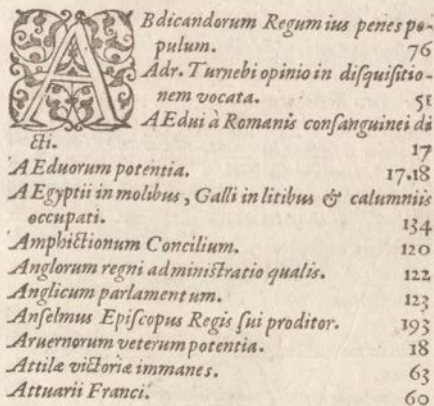 ABdicandorum Regum ius penes po-
pulum. 76
Adr. Turnebi opinio in diſquiſitio-
nem vocata. 51
AEdui à Romanis conſanguinei di
cti. 17
AEduorum potentia. 17.18
AEgyptii in molibus, Galli in litibus & calumniis
occupati. 134
Amphictionum Concilium. 120
Anglorum regni adminiſtratio qualis. 122
Anglicum parlamentum. 123
Anſelmus Epiſcopus Regis ſui proditor. 193
Aruernorum veterum potentia. 18
Attilæ victoriæ immanes. 63
Attuarii Franci. 60